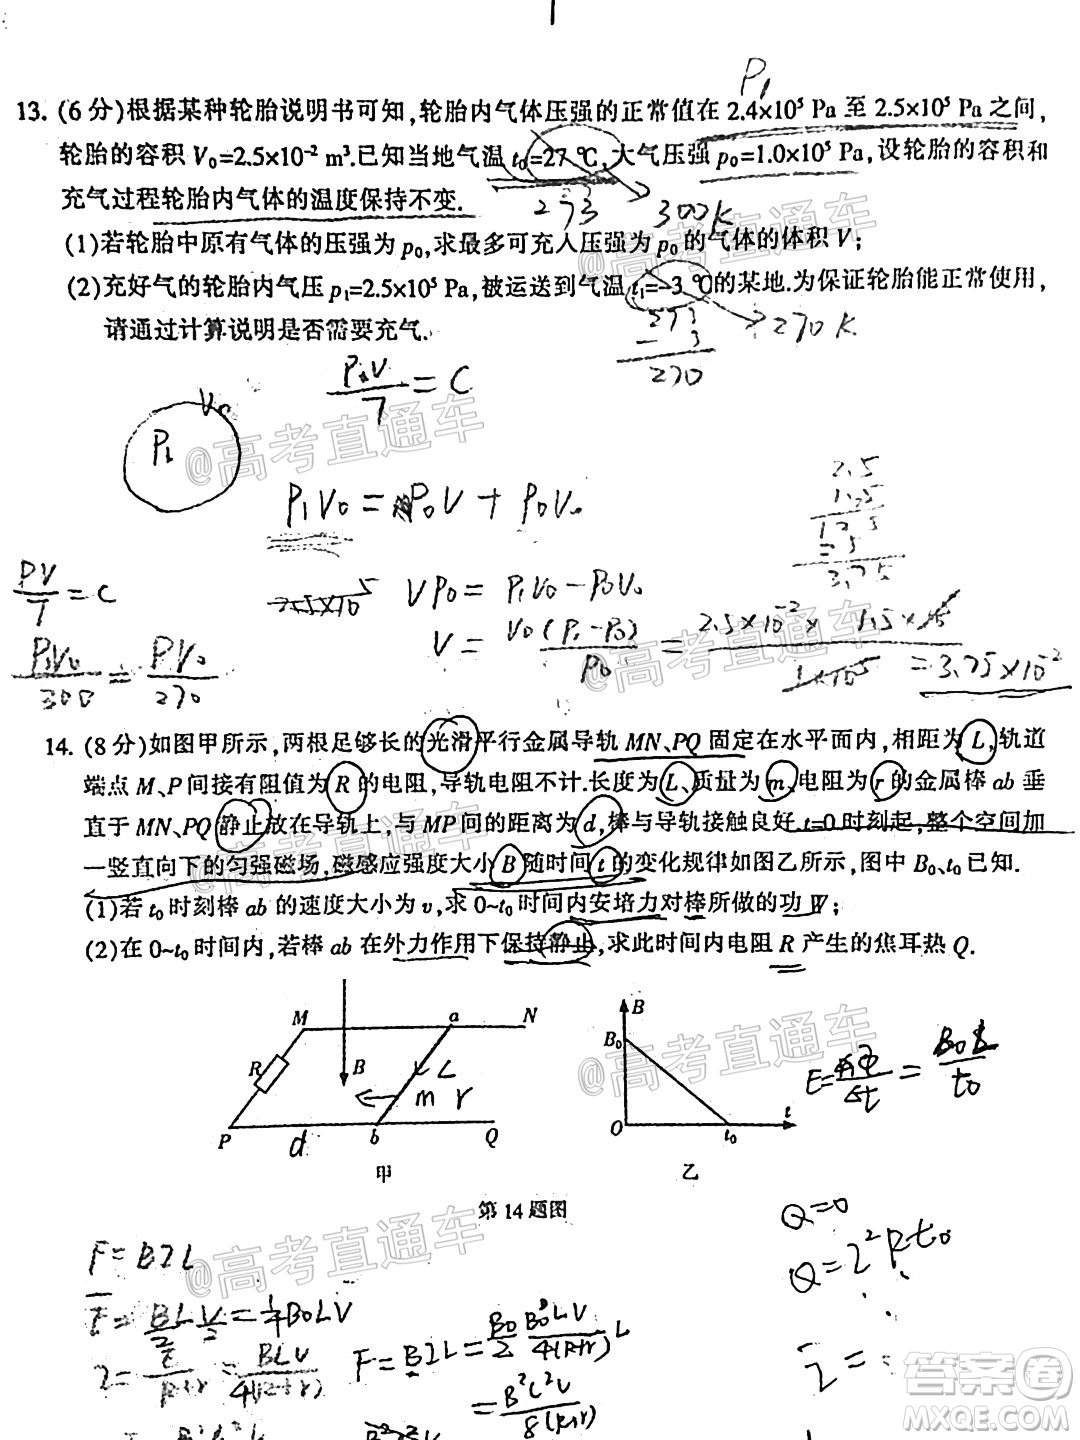 P₁
13. (6分)根据某种轮胎说明书可知,轮胎内气体压强的正常值在 2.4×10⁵ Pa 至 2.5×10⁵ Pa 之间,
轮胎的容积 V₀=2.5×10⁻² m³.已知当地气温 t₀=27 ℃,大气压强 p₀=1.0×10⁵ Pa,设轮胎的容积和
充气过程轮胎内气体的温度保持不变.
273
300K
(1)若轮胎中原有气体的压强为 p₀,求最多可充入压强为 p₀ 的气体的体积 V;
(2)充好气的轮胎内气压 p₁=2.5×10⁵ Pa,被运送到气温 t₁=-3 ℃的某地.为保证轮胎能正常使用,
请通过计算说明是否需要充气.
273
- 3
270
270 K
V₀
P₁
=C
@高考直通车
P₁V₀ = P₀V + P₀V₀
2.5
1.5
125
25
3.75
PV/T = C
2.5×10⁵
VP₀ = P₁V₀-P₀V₀
V = V₀(P₁-P₀)/P₀ = 2.5×10⁻²× 1.5×10⁵/1×10⁵ = 3.75×10⁻²
P₁V₀/300 = PV₀/270
14. (8分)如图甲所示,两根足够长的光滑平行金属导轨 MN、PQ 固定在水平面内,相距为 L,轨道
端点 M、P 间接有阻值为 R 的电阻,导轨电阻不计.长度为 L、质量为 m、电阻为 r 的金属棒 ab 垂
直于 MN、PQ 静止放在导轨上,与 MP 间的距离为 d,棒与导轨接触良好.t=0 时刻起,整个空间加
一竖直向下的匀强磁场,磁感应强度大小 B 随时间 t 的变化规律如图乙所示,图中 B₀、t₀ 已知.
(1)若 t₀ 时刻棒 ab 的速度大小为 v,求 0~t₀ 时间内安培力对棒所做的功 W;
(2)在 0~t₀ 时间内,若棒 ab 在外力作用下保持静止,求此时间内电阻 R 产生的焦耳热 Q.
M
a
N
R
B
L
m r
P
d
b
Q
甲
B
B₀
O
t₀
t
乙
第14题图
@高考直通车
F=BIL
Q=0
Q=I²Rt₀
F=BIL=
答案圈
MXQE.COM